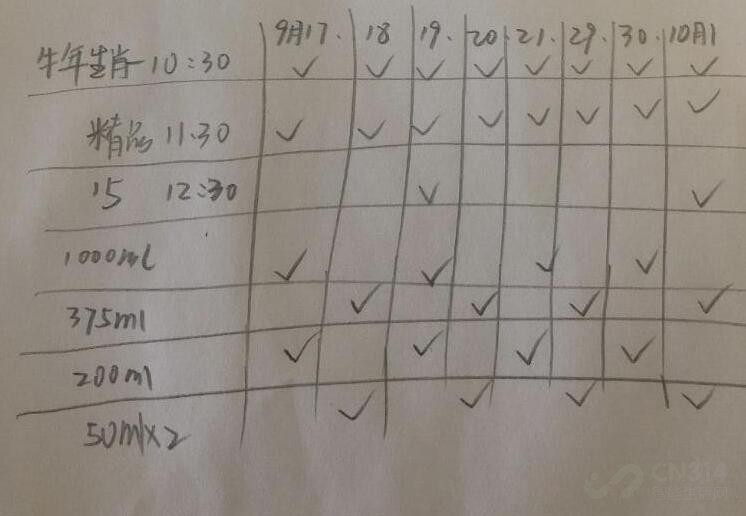 9月17. 18 19. 20 21. 29. 30. 10月1
牛年生肖 10:30 ✓ ✓ ✓ ✓ ✓ ✓ ✓ ✓
精品 11.30 ✓ ✓ ✓ ✓ ✓ ✓ ✓ ✓
15 12:30 ✓ ✓
1000ml ✓ ✓ ✓ ✓
375ml ✓ ✓ ✓ ✓
200ml ✓ ✓ ✓ ✓
50ml×2 ✓ ✓ ✓ ✓